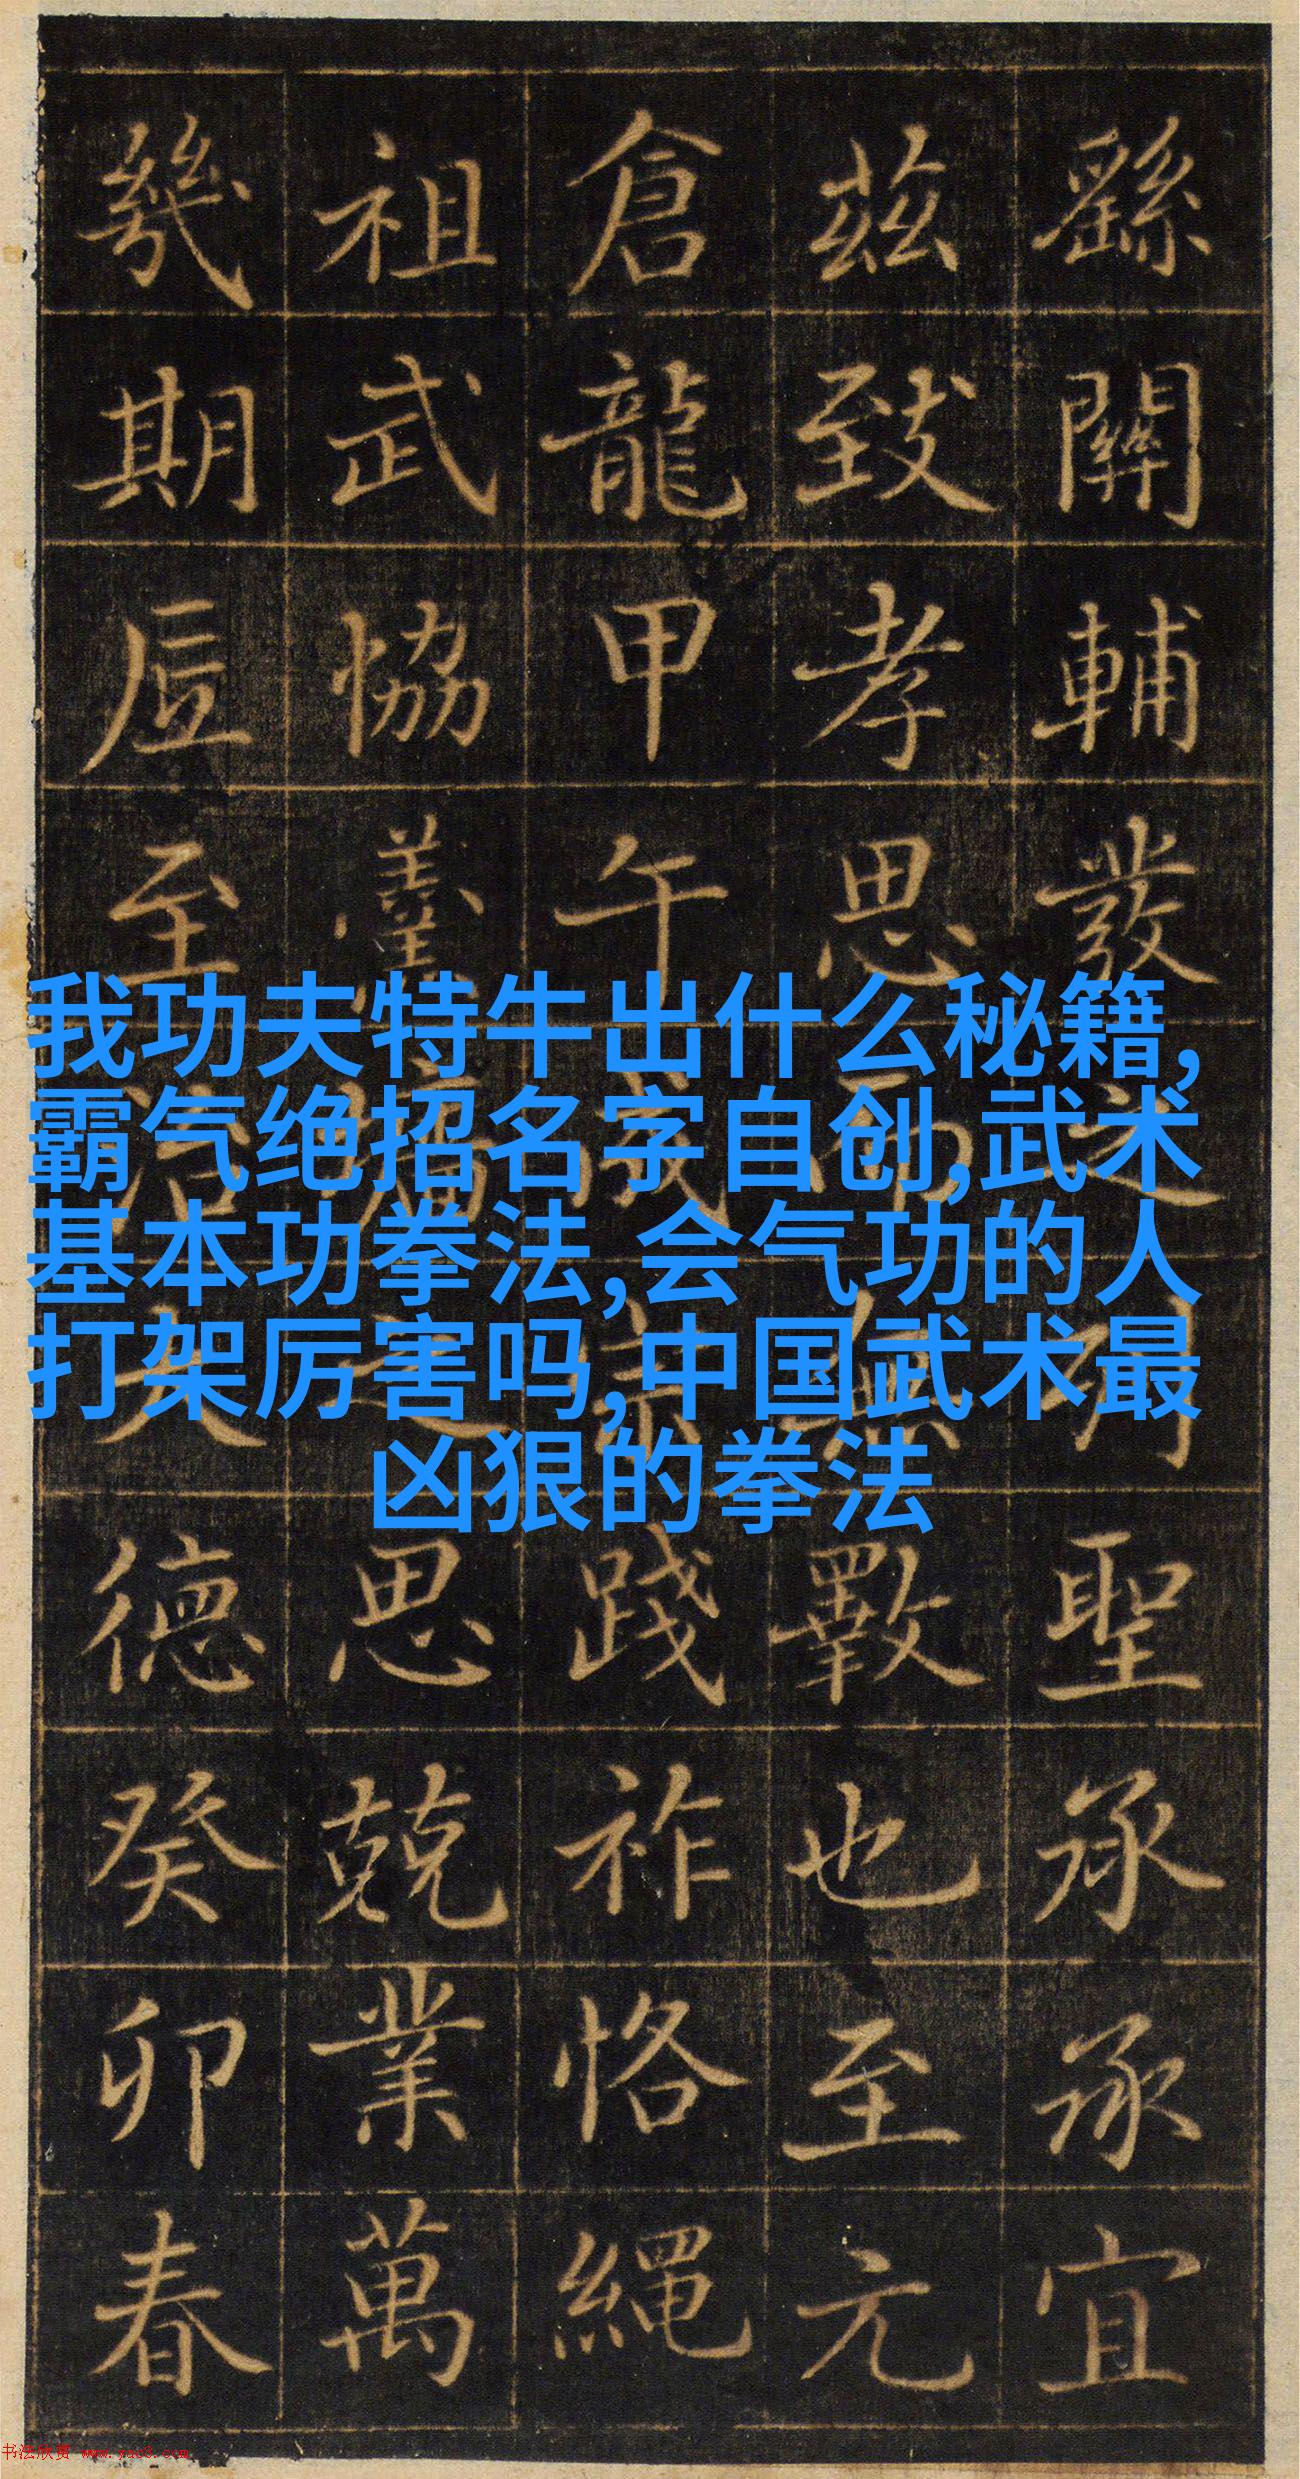 繇關輔發之列聖承承宜
茲致孝思而無斁也至元
倉龍甲午成宗踐祚恪繩
祖武協羹牆之思兢業萬
幾期底至治大德癸卯春
我功夫特牛出什么秘籍,
霸气绝招名字自创,武术
基本功拳法,会气功的人
打架厉害吗,中国武术最
凶狠的拳法
书法欣赏 www.yac8.com